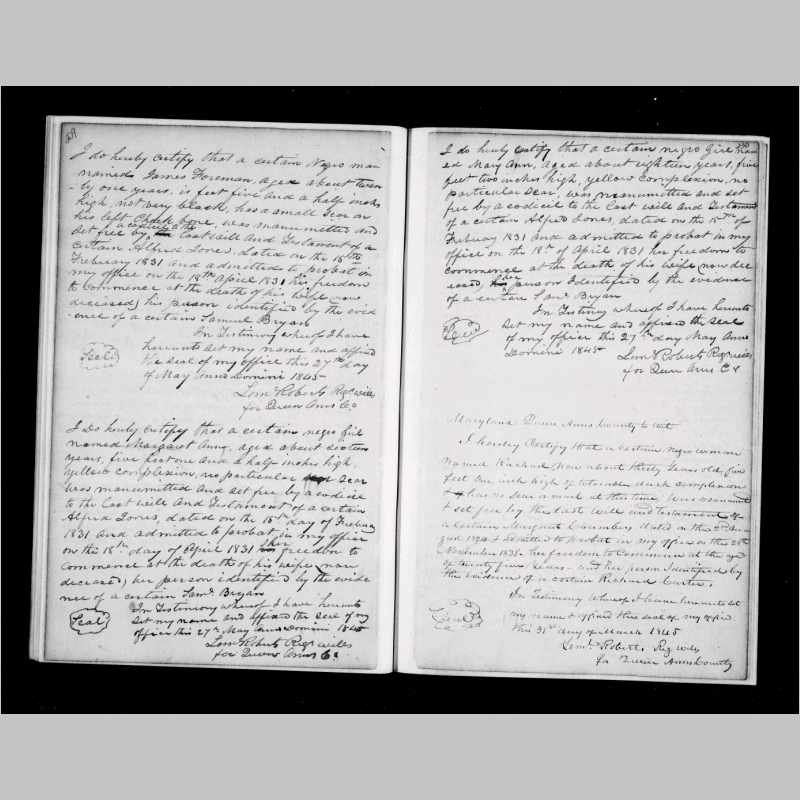 I do hereby certify that a certain Negro man
named James Foreman, aged about twen
-ty one years, is feet five and a half inches
high, not very black, has a small Scar on
his left Cheek bone, was manumitted and
set free by a codicil to the Last will and Testament of a
certain Alfred Jones, dated on the 15th
Febuary 1831 and admitted to probat in
my office on the 18th April 1831 his freedom
to commence at the death of his wife (now
deceased) his person identified by the evid
ence of a certain Samuel Bryan
In Testimony whereof I have
hereunto set my name and affixed
Seal
the seal of my office this 27th day
of May Anno Domini 1845
Lem. Roberts Regr wills
for Queen Anns Co
I do hereby certify that a certain negro girl
named Margaret Anne, aged about sixteen
years, five feet one and a half inches high,
yellow complexion, no particular Scar
was manumitted and set free by a codicil
to the Last will and Testament of a certain
Alfred Jones, dated on the 15th day of Febuary
1831 and admitted to probat, in my office
on the 18th day of April 1831 her freedom to
commence at the death of his wife (now
deceased) her person identified by the evide
nce of a certain Saml Bryan
In Testimony whereof I have hereunto
Seal
set my name and affixed the seal of my
office this 27th May Anno Domini 1845
Lem Roberts Regr wills
for Queen Anns Co
I do hereby certify that a certain negro Girl nam
ed Mary Ann, aged about eighteen years, five
feet two inches high, yellow complexion, no
particular Scar, was manumitted and set
free by a codicil to the Last will and Testament
of a certain Alfred Jones, dated on the 15th of
Febuary 1831 and admitted to probat in my
office on the 18th of April 1831 her freedom to
commence at the death of his wife (now dec
eased) her person Identified by the evidence
of a certain Saml Bryan
In Testimony whereof I have hereunto
Seal
set my name and affixed the seal
of my office this 27th day May Anno
Domini 1845
Lem Roberts Regr wills
for Queen Anns Co
Maryland Queen Anns County to wit
I hereby Certify that a certain negro woman
named Rachael now about thirty years old five
feet one inch high of dark complexion
has no scar or mark at this time, was manumitted
& set free by the last will and testament of
a certain Margaret dated on the 2nd
& admitted to probat in my office on the 28th
November 183 her freedom to commence at the age
of twenty five years and her person Identified by
the evidence of a certain Richard Carter.
In Testimony whereof I have hereunto set
Seal
my name & affixed the seal of my office
this 31st day of March 1845
Leml. Roberts Reg wills
for Queen Anns County